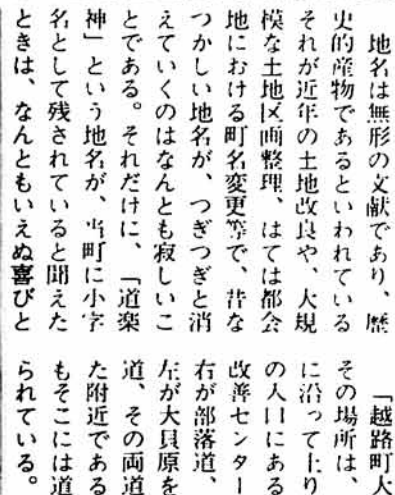 地名は無形の文献であり、歴
史的産物であるといわれている
それが近年の土地改良や、大規
模な土地区画整理、はては都会
地における町名変更等で、昔な
つかしい地名が、つぎつぎと消
えていくのはなんとも寂しいこ
とである。それだけに、「道楽
神」という地名が、当町に小字
名として残されていると聞えた
ときは、なんともいえぬ喜びと
「越路町大
その場所は、
に沿って上り
の入口にある
改善センター
右が部落道、
左が大貝原を
道、その両道
た附近である
もそこには道
られている。